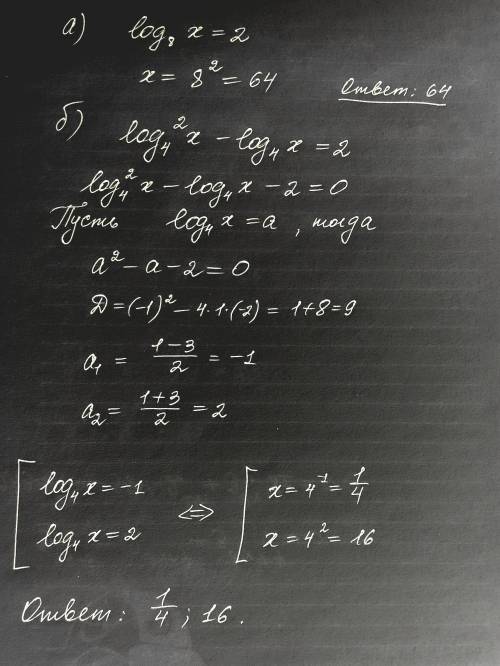 а) log₈ x = 2
x = 8² = 64
Ответ: 64
б) log₄² x − log₄ x = 2
log₄² x − log₄ x − 2 = 0
Пусть log₄ x = a , тогда
a² − a − 2 = 0
Д = (−1)² − 4·1·(−2) = 1+8 = 9
a₁ = (1−3)/2 = −1
a₂ = (1+3)/2 = 2
[ log₄ x = −1 ⇔ [ x = 4⁻¹ = 1/4
log₄ x = 2 x = 4² = 16
Ответ: 1/4 ; 16.